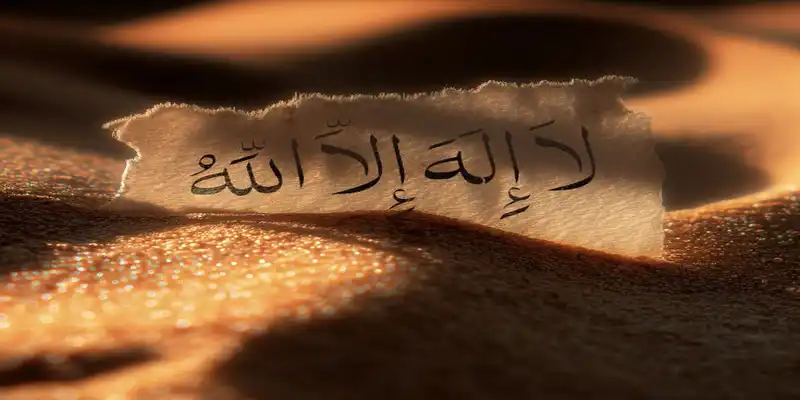 لَا إِلَهَ إِلاَّ اللّٰهُ